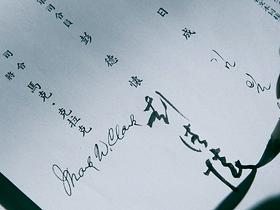 日成
司令員
彭德懷
馬克·克拉克
彭德懷
Mark W. Clark